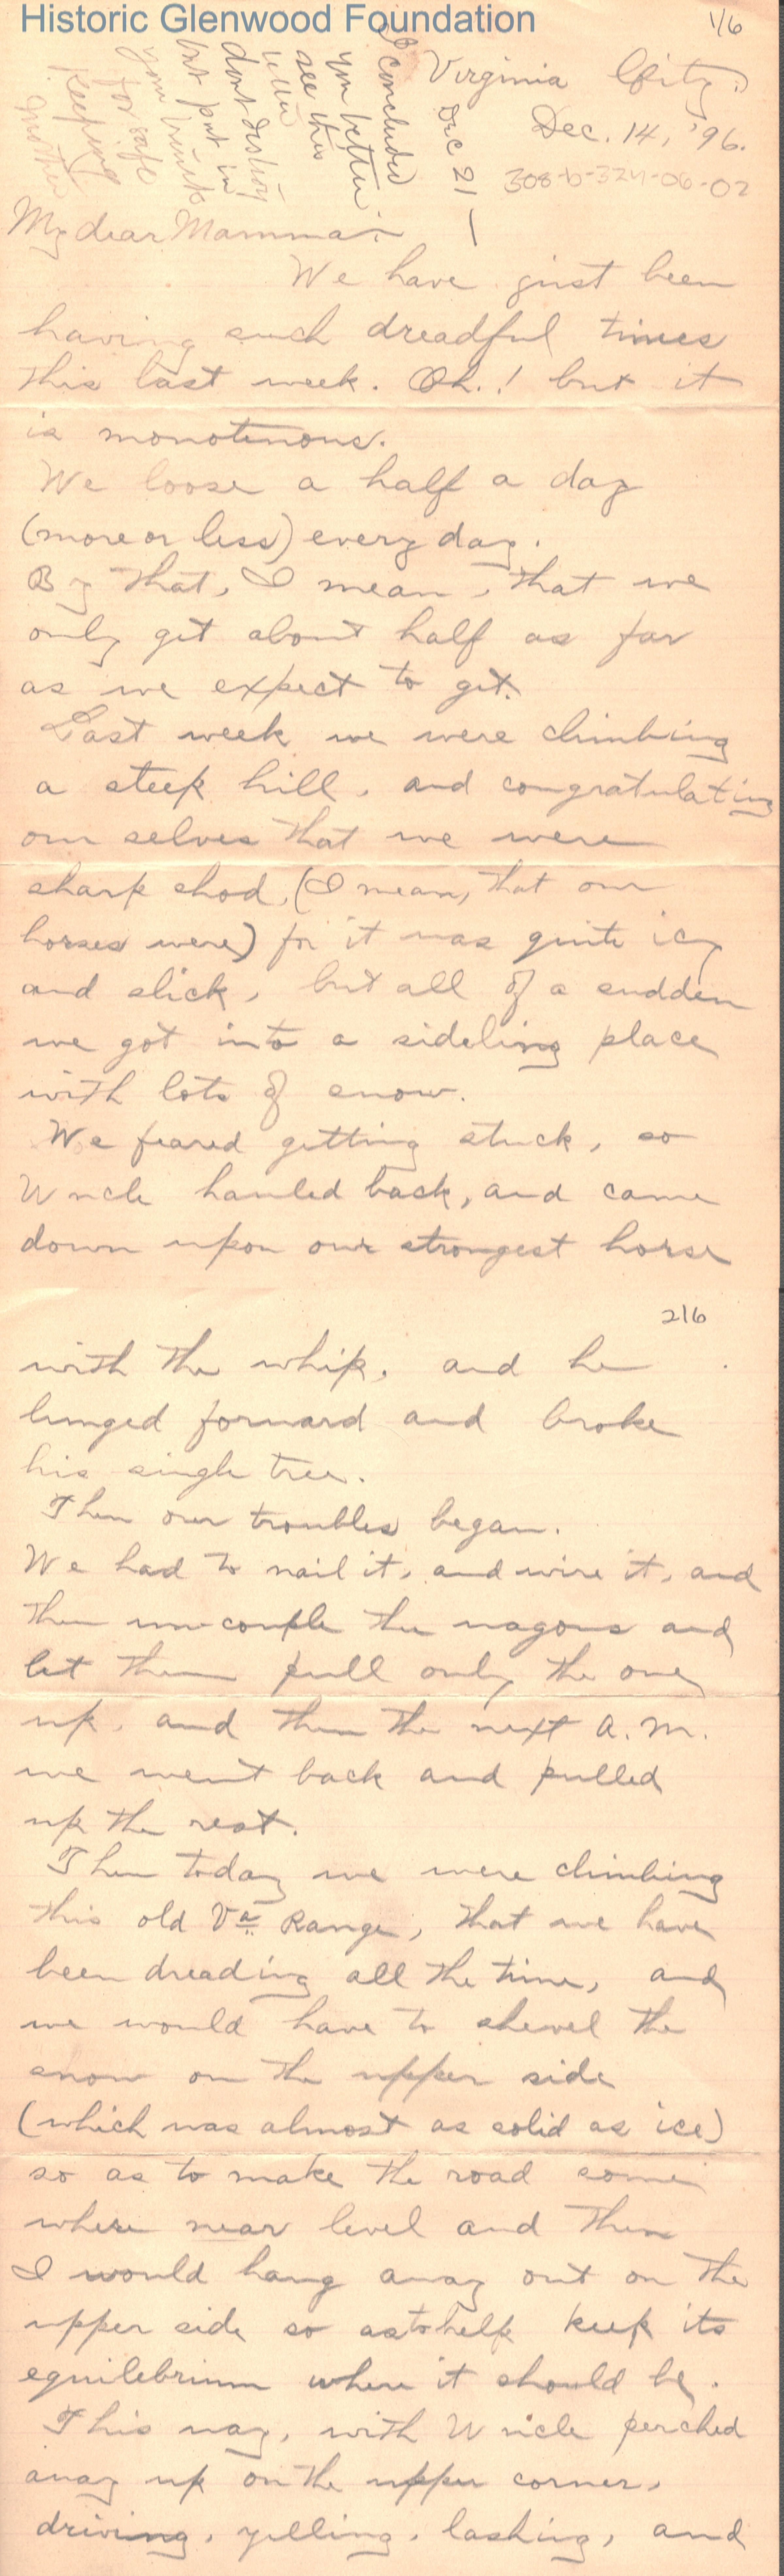 Historic Glenwood Foundation
1/6
Virginia City,
Dec. 14, '96.
308-b-324-06-02
Dec 21
I concluded
you better
see this
letter
dont destroy
but put in
your trunk
for safe
keeping
Mother
My dear Mamma:-
We have just been
having such dreadful times
this last week. Oh.! but it
is monotinous.
We loose a half a day
(more or less) every day.
By that, I mean, that we
only get about half as far
as we expect to get.
Last week we were climbing
a steep hill, and congratulating
our selves that we were
sharp shod, (I mean, that our
horses were) for it was quite icy
and slick, but all of a sudden
we got into a sideling place
with lots of snow.
We feared getting stuck, so
Uncle hauled back, and came
down upon our strongest horse
2/6
with the whip, and he
lunged forward and broke
his single tree.
Then our troubles began.
We had to nail it, and wire it, and
then un-couple the wagons and
let them pull only the one
up, and then the next A.M.
we went back and pulled
up the rest.
Then today we were climbing
this old Va Range, that we have
been dreading all the time, and
we would have to shevel the
snow on the upper side
(which was almost as solid as ice)
so as to make the road some
where near level and then
I would hang away out on the
upper side so as to help keep its
equilebrium where it should be.
This way, with Uncle perched
away up on the upper corner,
driving, yelling, lashing, and